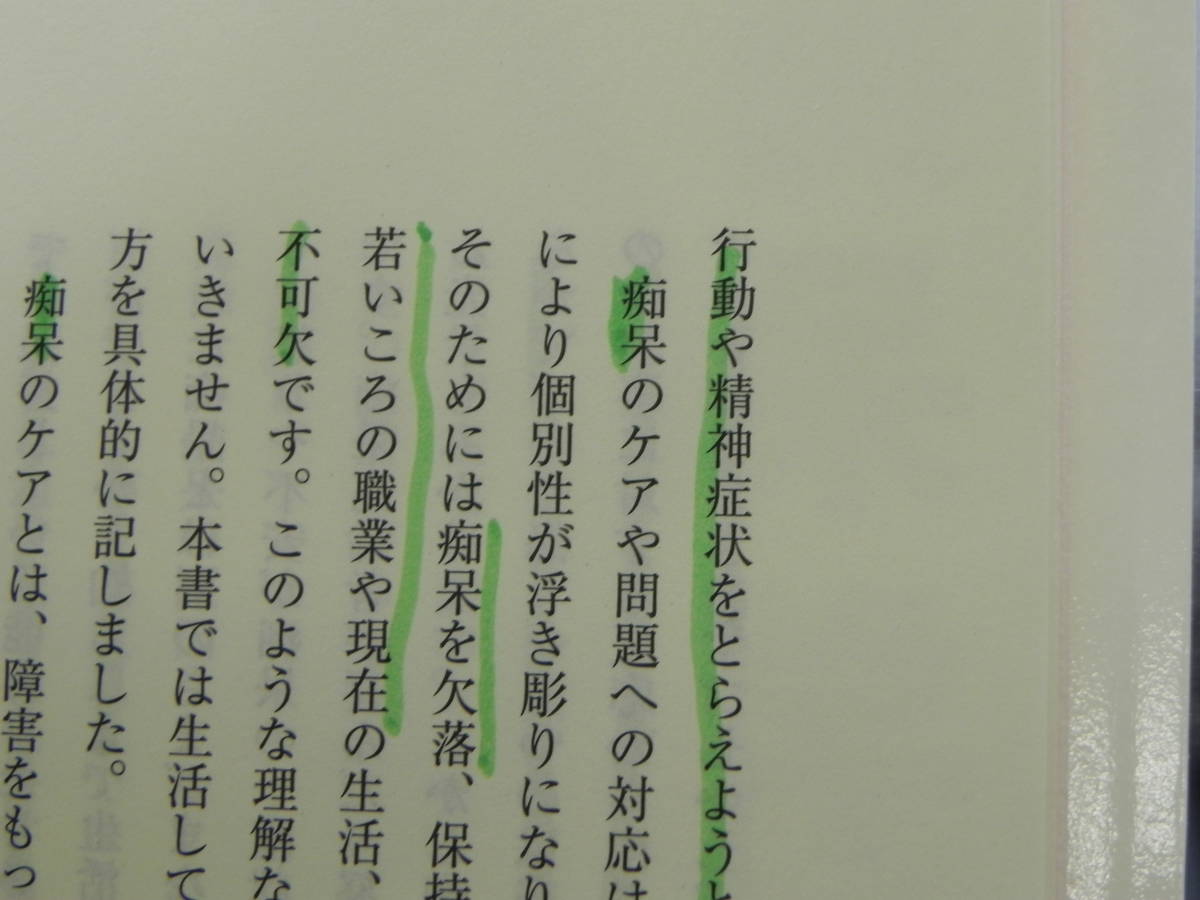 行動や精神症状をとらえようと
痴呆のケアや問題への対応は
により個別性が浮き彫りになり
そのためには痴呆を欠落、保持
若いころの職業や現在の生活、
不可欠です。このような理解な
いきません。本書では生活して
方を具体的に記しました。
痴呆のケアとは、障害をもっ